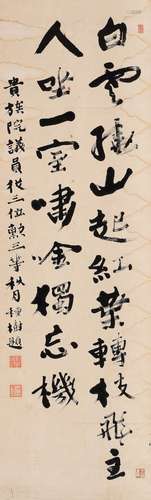 白雲山起紅葉轉枝飛主
人坐一室嘯吟獨忘機
貴族院議員從三位勲三等秋月種樹題